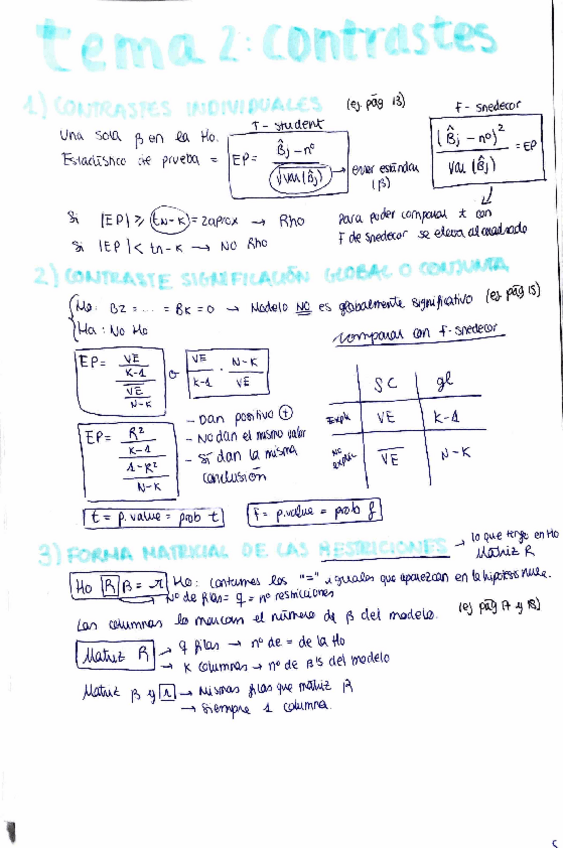 tema 2: contrastes
1) CONTRASTES INDIVIDUALES (ej pág 13)
Una sola β en la Ho.
T - student
F - snedecor
Estadístico de prueba = EP = β̂j - nº / √var(β̂j) → error estándar (β)
(β̂j - nº)² / var(β̂j) = EP
Si |EP| ≥ tN-K = 2 aprox → Rho
Si |EP| < tn-k → NO Rho
Para poder comparar t con
F de snedecor se eleva al cuadrado
2) CONTRASTE SIGNIFICACIÓN GLOBAL O CONJUNTA
Ho: B2 = ... = Bk = 0 → Modelo NO es globalmente significativo (ej pág 15)
Ha: No Ho
comparar con F-snedecor
EP = VE / K-1 / V̅E̅ / N-K o VE / K-1 · N-K / V̅E̅
SC gl
Explic VE K-1
No explic V̅E̅ N-K
EP = R² / K-1 / 1-R² / N-K
- Dan positivo ⊕
- No dan el mismo valor
- Sí dan la misma
conclusión
t = p.value = prob t
F = p.value = prob f
3) FORMA MATRICIAL DE LAS RESTRICCIONES → lo que tengo en Ho
Matriz R
Ho R β = r Ho: contamos los "=" iguales que aparezcan en la hipótesis nula.
Nº de filas = q = nº restricciones
Las columnas lo marcan el número de β del modelo. (ej pág 17 y 18)
Matriz R → q filas → nº de = de la Ho
→ K columnas → nº de β's del modelo
Matriz β y r → Mismas filas que matriz R
→ Siempre 1 columna.